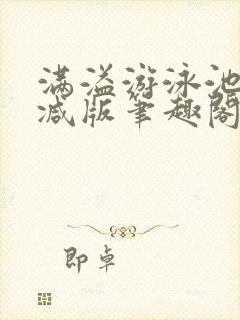 满溢游泳池
减版笔趣阁
即卓